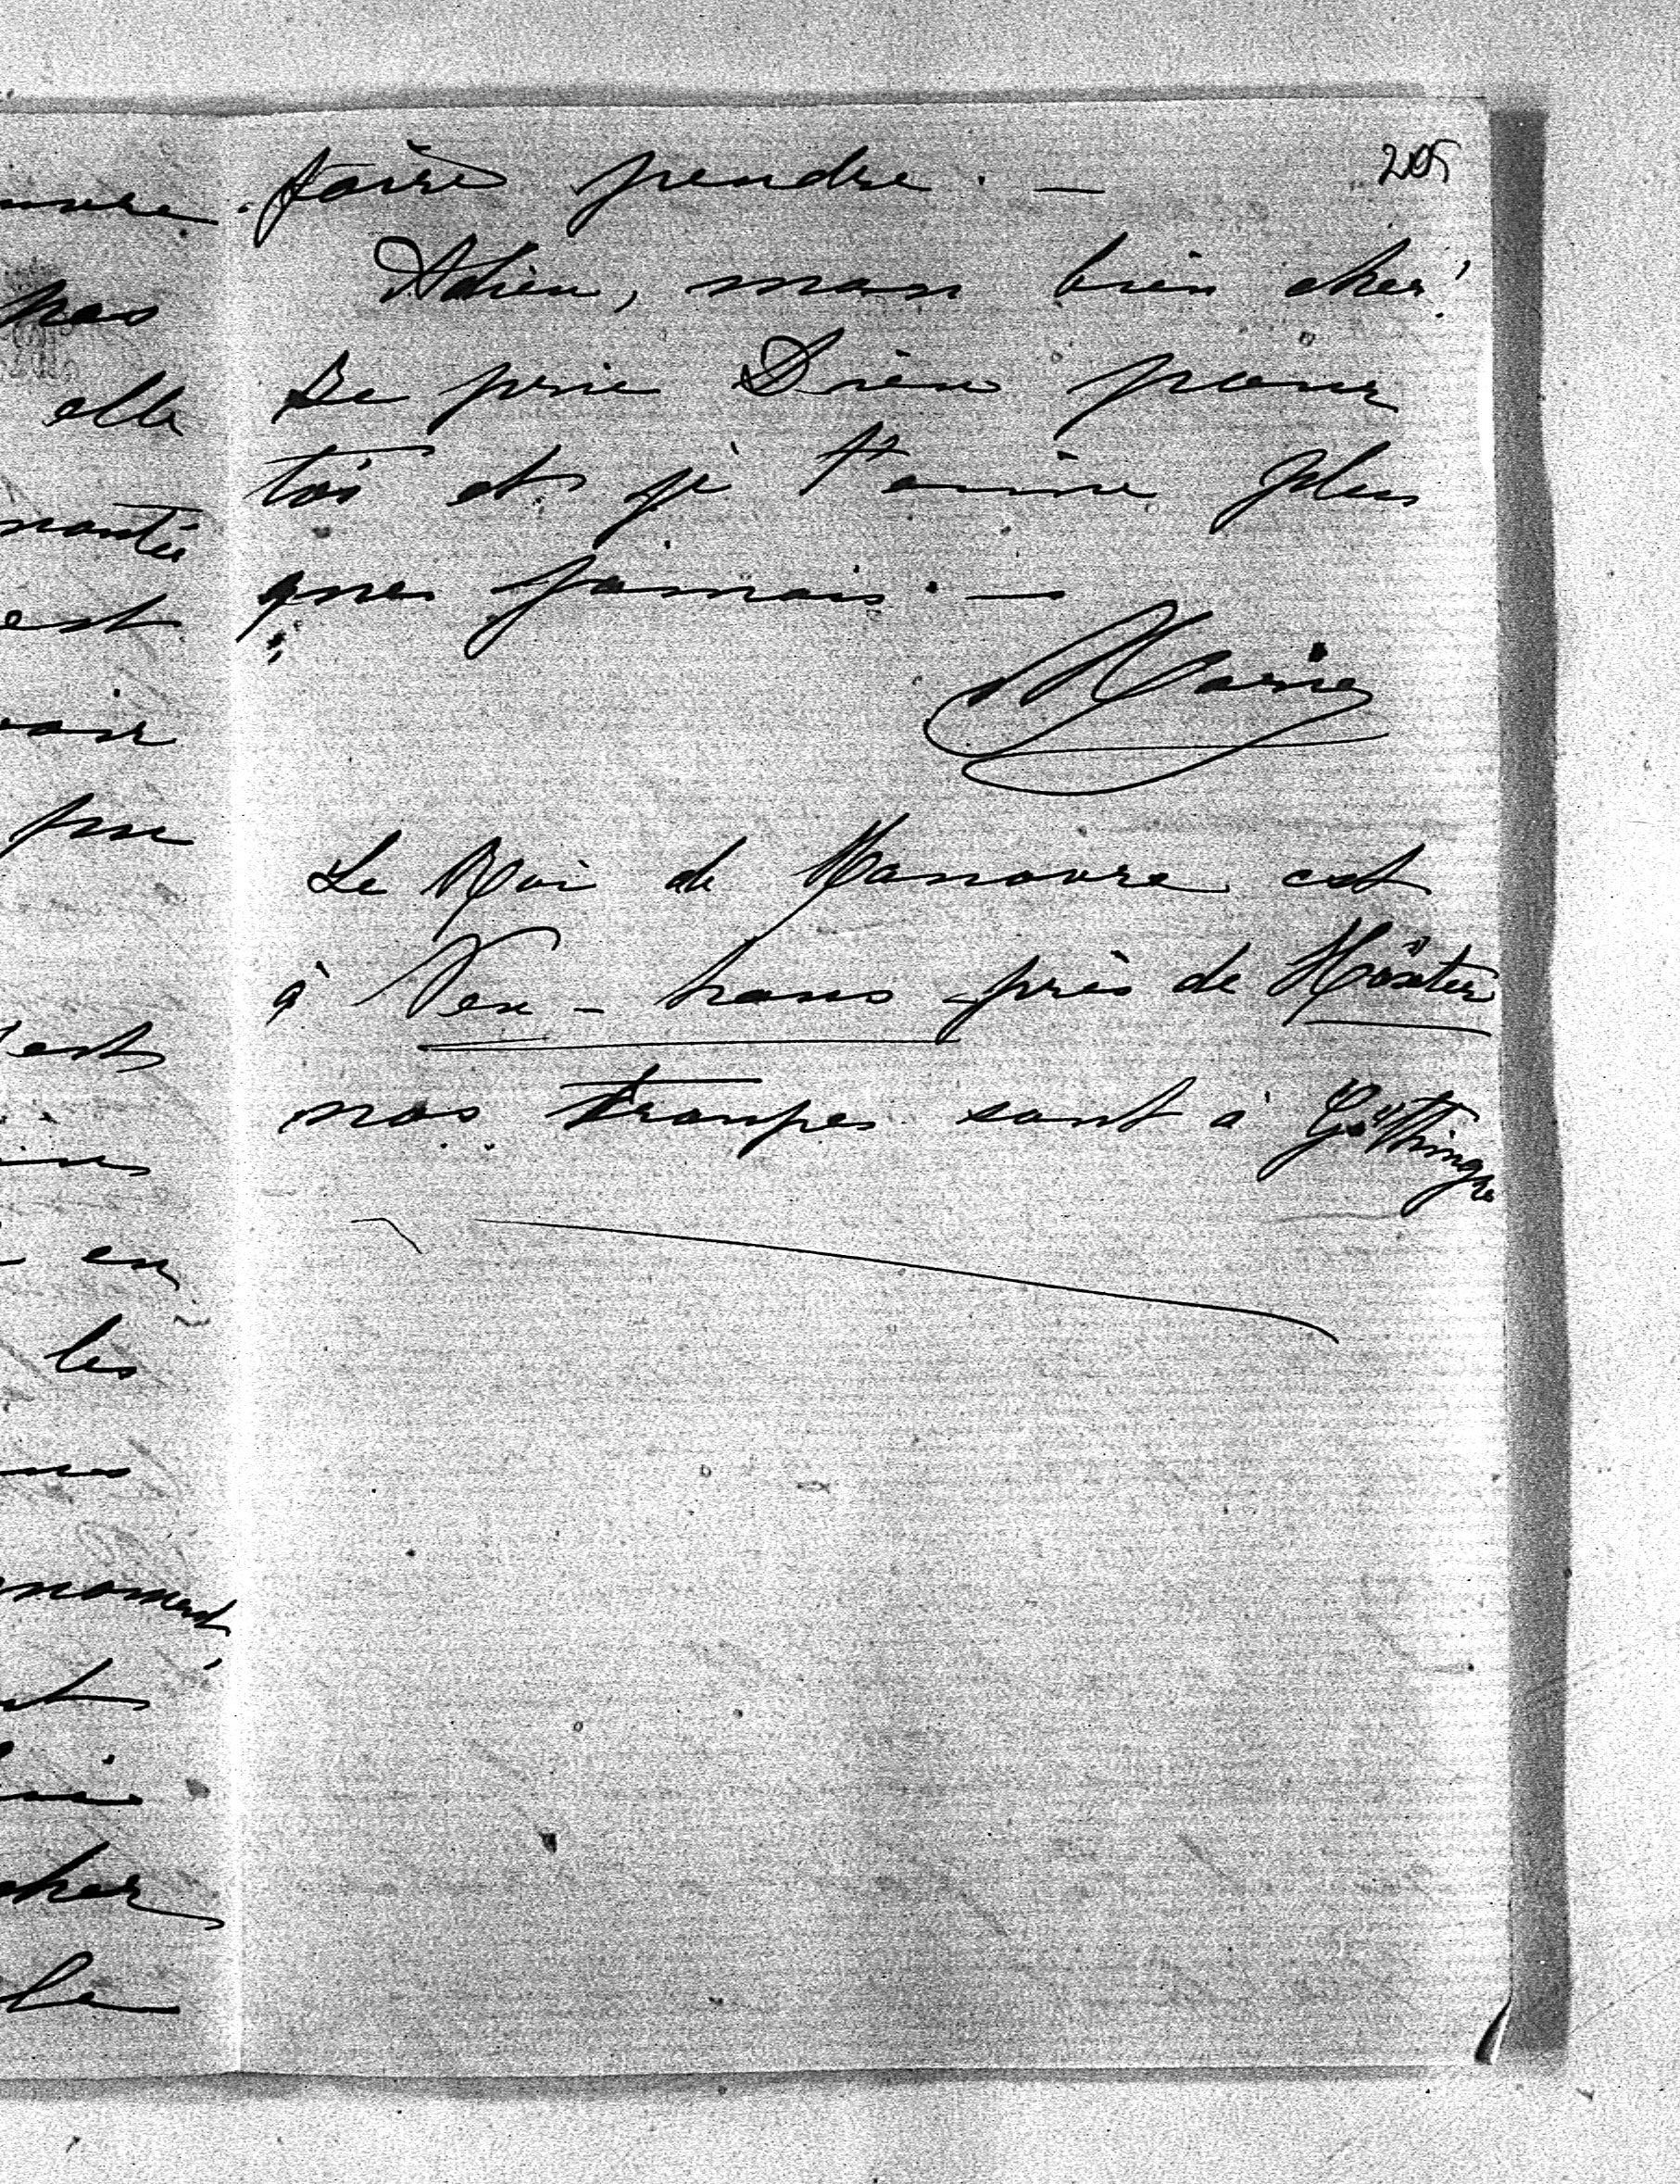 205
faire pendre. —
Adieu, mon bien cher!
Je prie Dieu pour
toi et je t'aime plus
que jamais. —
Marie
Le Roi de Hanovre est
à Neu-haus près de Höxter
nos troupes sont à Göttingen
pas
elle
montée
est
voir
pu
est
en
les
moment
cher
le